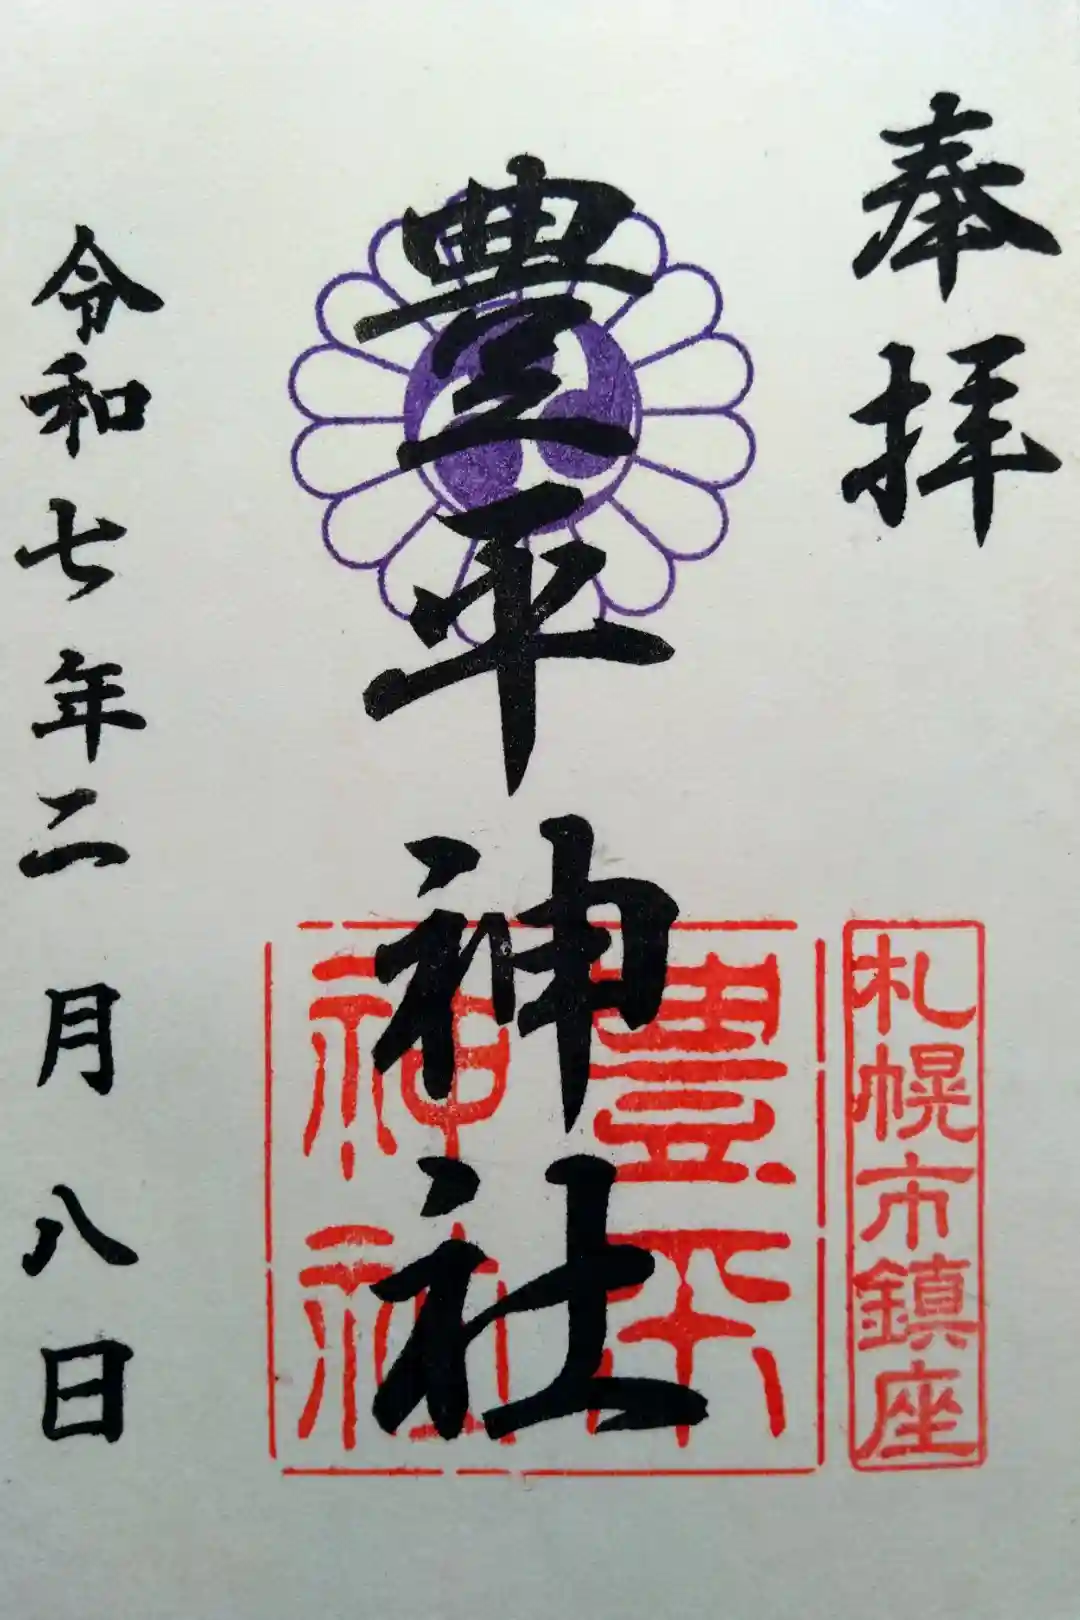 奉拝
札幌市鎮座
豊平神社
豊平
神社
令和七年二月八日